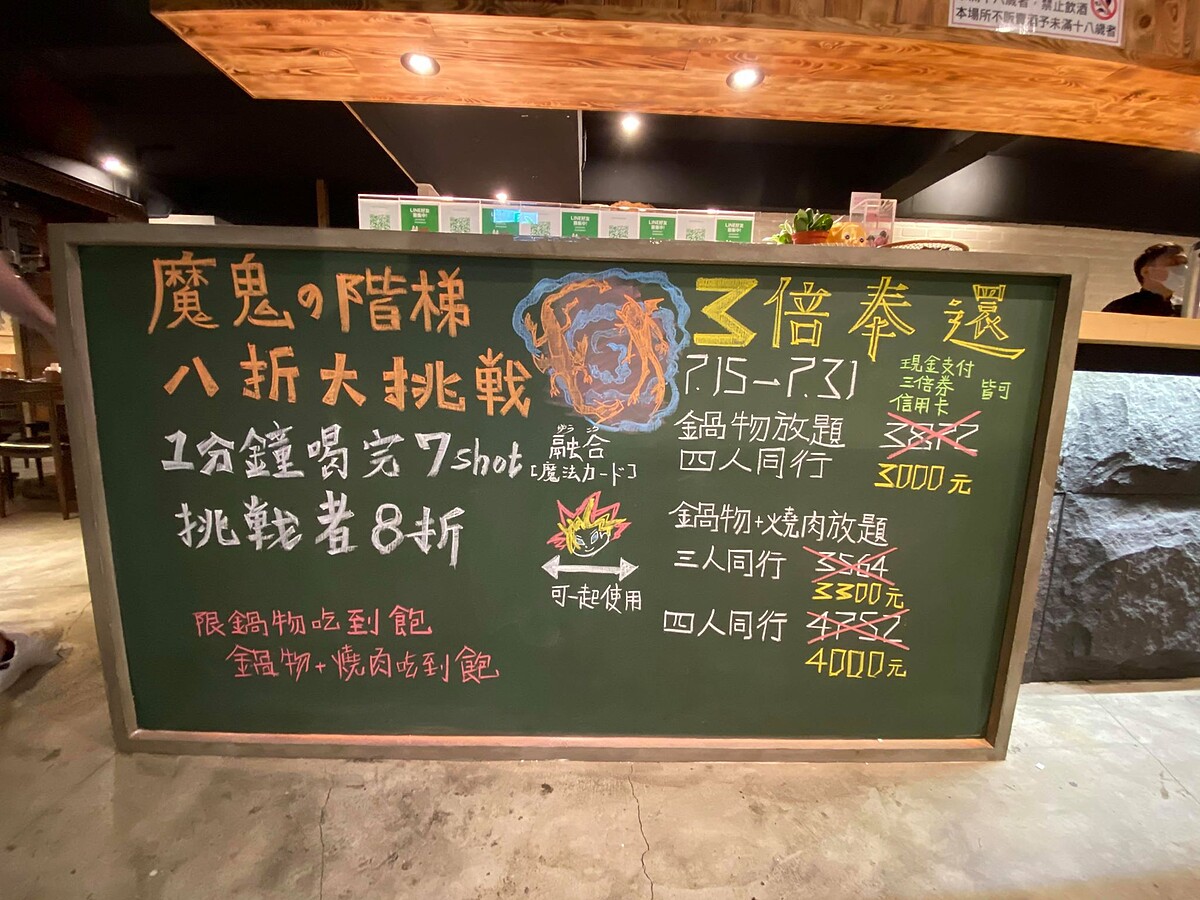 禁止飲酒
本場所不販賣酒予未滿十八歲者
魔鬼の階梯
八折大挑戰
1分鐘喝完7shot
挑戰者8折
限鍋物吃到飽
鍋物+燒肉吃到飽
融合
[魔法カード]
可一起使用
3倍奉還
7.15→7.31
現金支付
三倍券
信用卡
皆可
鍋物放題
四人同行
3872
3000元
鍋物+燒肉放題
三人同行 3564
3300元
四人同行 4752
4000元